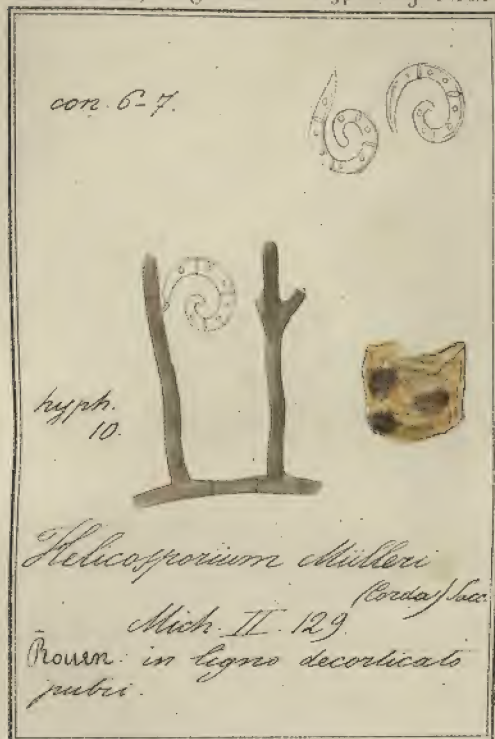 con. 6-7.
hyph.
10.
Helicosporium Mülleri
(Corda) Sacc.
Mich. II. 129.
Rouen. in ligno decorticato
putri.